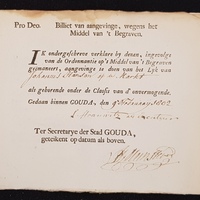 Pro Deo. Billiet van aangevinge, wegens het
Middel van 't Begraven.
IK ondergeschreve verklare by desen, ingevolge
van de Ordonnantie op 't Middel van 't Begraven
geëmaneert, aangevinge te doen van het Lyk van
Johannes op de Markt
als gehorende onder de Classis van d' onvermogende.
Gedaan binnen GOUDA, den 9 February 1802
Ter Secretarye der Stad GOUDA,
geteikent op datum als boven.